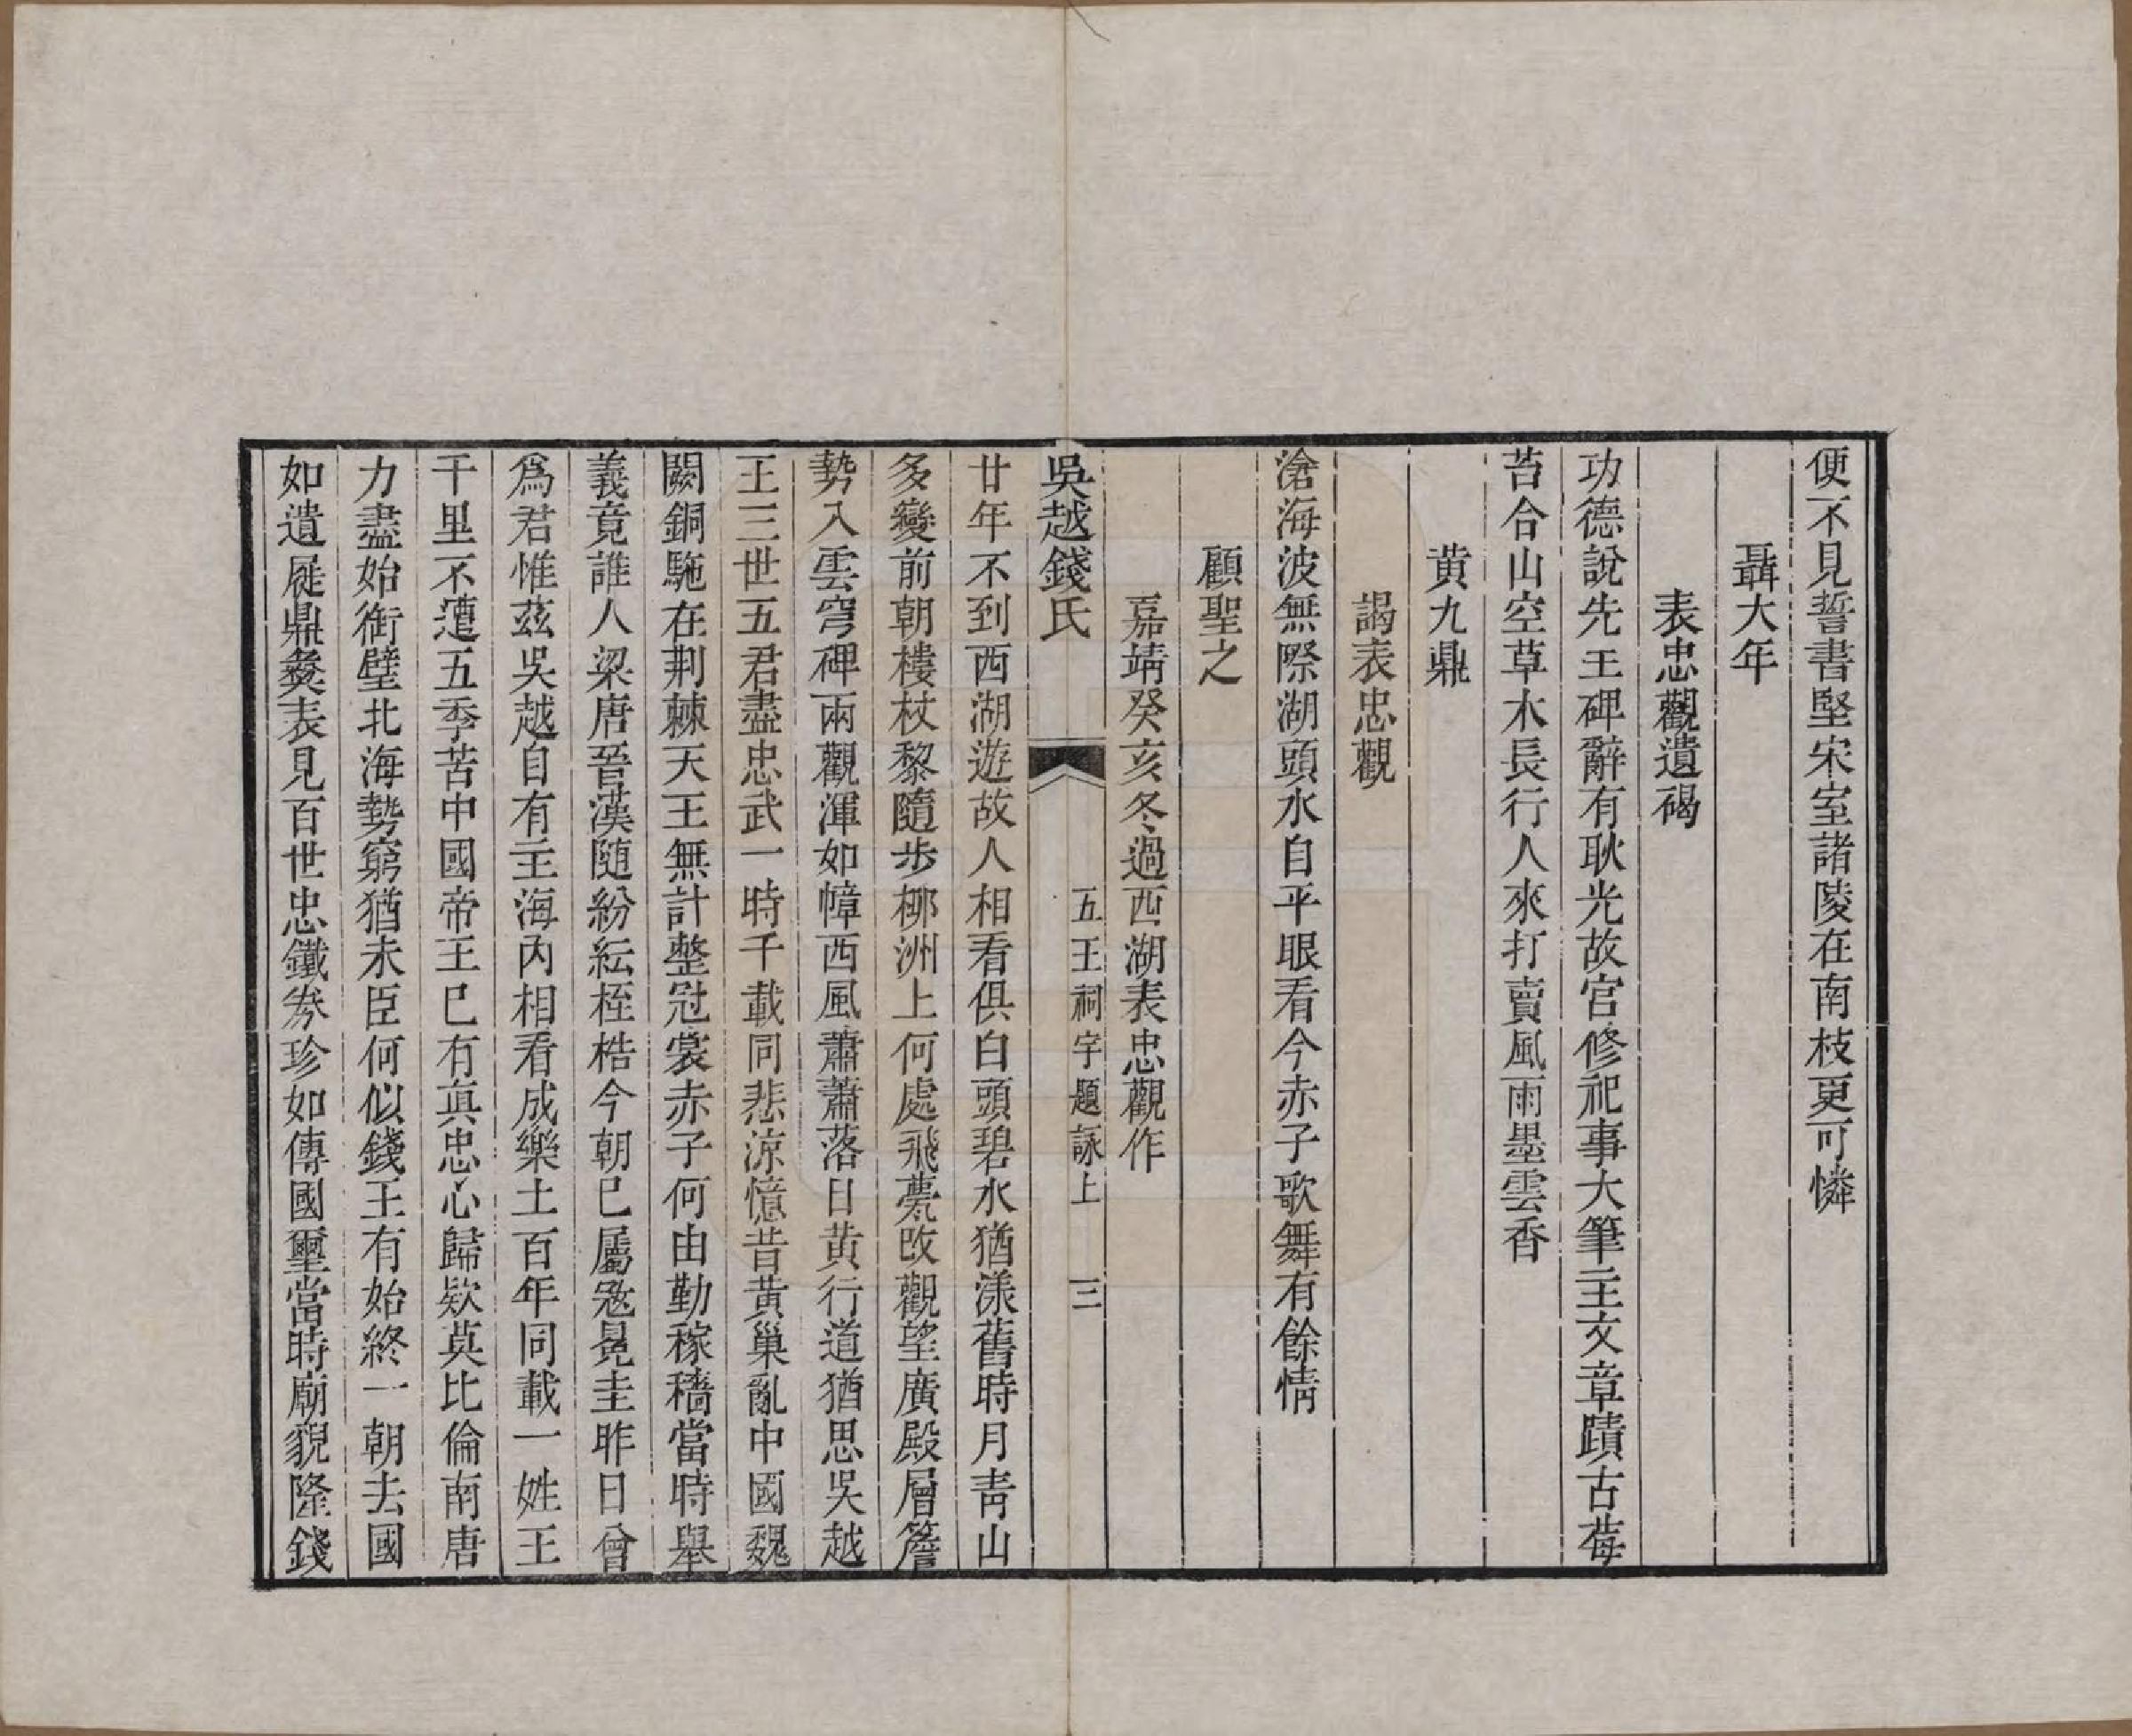 便不見誓書堅宋室諸陵在南枝更可憐
聶大年
表忠觀遺碣
功德說先王碑辭有耿光故宮修祀事大筆主文章蹟古莓
苔合山空草木長行人來打賣風雨墨雲香
黃九鼎
謁表忠觀
滄海波無際湖頭水自平眼看今赤子歌舞有餘情
顧聖之
嘉靖癸亥冬過西湖表忠觀作
吳越錢氏
五王祠宇題詠上
三
廿年不到西湖遊故人相看俱白頭碧水猶漾舊時月靑山
多變前朝樓杖黎隨步梛洲上何處飛甍改觀望廣殿層簷
勢入雲穹碑兩觀渾如幛西風蕭蕭落日黃行道猶思吳越
王三世五君盡忠武一時千載同悲涼憶昔黃巢亂中國魏
闕銅駞在荆棘天王無計整冠裳赤子何由勤稼穡當時舉
義竟誰人梁唐晉漢隨紛紜桎梏今朝已屬冕圭昨日曾
爲君惟茲吳越自有主海內相看成樂土百年同載一姓王
千里不遭五季苦中國帝王已有眞忠心歸欵莫比倫南唐
力盡始銜璧北海勢窮猶未臣何似錢王有始終一朝去國
如遺屣鼎彜表見百世忠鐵劵珍如傳國璽當時廟貌隆錢